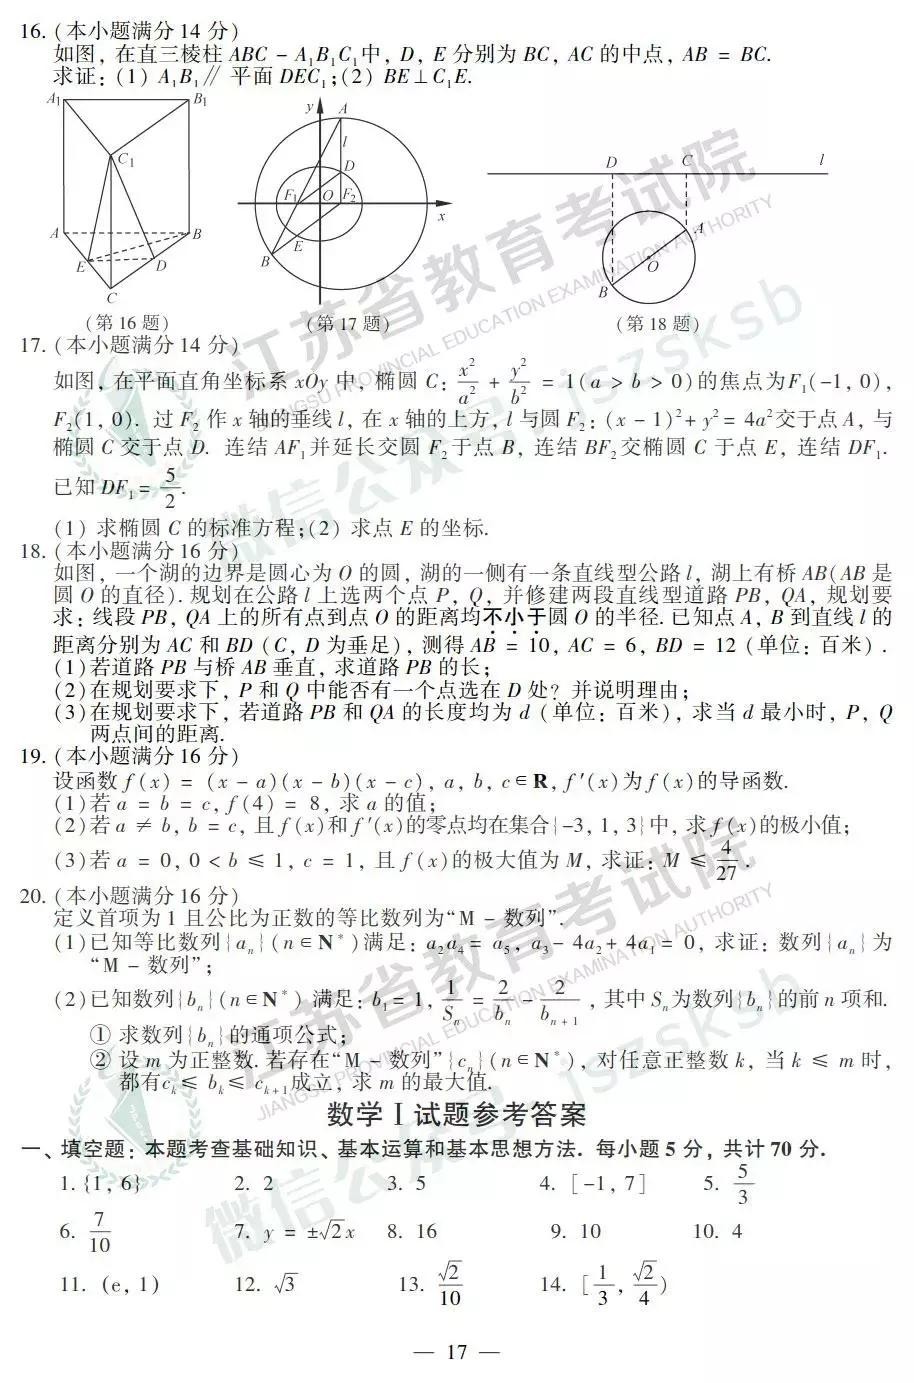 16. (本小题满分 14 分)
如图, 在直三棱柱 ABC - A₁B₁C₁中, D, E 分别为 BC, AC 的中点, AB = BC.
求证: (1) A₁B₁∥ 平面 DEC₁; (2) BE⊥C₁E.
A₁ B₁ C₁ A B E D C
y A l D F₁ O F₂ x E B
D C l A O B
(第 16 题) (第 17 题) (第 18 题)
17. (本小题满分 14 分)
如图, 在平面直角坐标系 xOy 中, 椭圆 C: x²/a² + y²/b² = 1(a > b > 0)的焦点为F₁(-1, 0),
F₂(1, 0). 过 F₂ 作 x 轴的垂线 l, 在 x 轴的上方, l 与圆 F₂: (x - 1)² + y² = 4a²交于点 A, 与
椭圆 C 交于点 D. 连结 AF₁并延长交圆 F₂于点 B, 连结 BF₂交椭圆 C 于点 E, 连结 DF₁.
已知 DF₁ = 5/2.
(1) 求椭圆 C 的标准方程; (2) 求点 E 的坐标.
18. (本小题满分 16 分)
如图, 一个湖的边界是圆心为 O 的圆, 湖的一侧有一条直线型公路 l, 湖上有桥 AB(AB 是
圆 O 的直径). 规划在公路 l 上选两个点 P, Q, 并修建两段直线型道路 PB, QA, 规划要
求: 线段 PB, QA 上的所有点到点 O 的距离均不小于圆 O 的半径. 已知点 A, B 到直线 l 的
距离分别为 AC 和 BD (C, D 为垂足), 测得 AB = 10, AC = 6, BD = 12 (单位: 百米) .
(1)若道路 PB 与桥 AB 垂直, 求道路 PB 的长;
(2)在规划要求下, P 和 Q 中能否有一个点选在 D 处? 并说明理由;
(3)在规划要求下, 若道路 PB 和 QA 的长度均为 d (单位: 百米), 求当 d 最小时, P, Q
两点间的距离.
19. (本小题满分 16 分)
设函数 f(x) = (x - a)(x - b)(x - c), a, b, c∈R, f′(x)为 f(x)的导函数.
(1)若 a = b = c, f(4) = 8, 求 a 的值;
(2)若 a ≠ b, b = c, 且 f(x)和 f′(x)的零点均在集合{-3, 1, 3}中, 求 f(x)的极小值;
(3)若 a = 0, 0 < b ≤ 1, c = 1, 且 f(x)的极大值为 M, 求证: M ≤ 4/27.
20. (本小题满分 16 分)
定义首项为 1 且公比为正数的等比数列为“M - 数列”.
(1)已知等比数列{aₙ}(n∈N*)满足: a₂a₄ = a₅, a₃ - 4a₂ + 4a₁ = 0, 求证: 数列{aₙ}为
“M - 数列”;
(2)已知数列{bₙ}(n∈N*) 满足: b₁ = 1, 1/Sₙ = 2/bₙ - 2/bₙ₊₁, 其中 Sₙ为数列{bₙ}的前 n 项和.
① 求数列{bₙ}的通项公式;
② 设 m 为正整数. 若存在“M - 数列”{cₙ}(n∈N*), 对任意正整数 k, 当 k ≤ m 时,
都有cₖ ≤ bₖ ≤ cₖ₊₁成立, 求 m 的最大值.
数学Ⅰ试题参考答案
一、填空题: 本题考查基础知识、基本运算和基本思想方法. 每小题 5 分, 共计 70 分.
1. {1, 6} 2. 2 3. 5 4. [-1, 7] 5. 5/3
6. 7/10 7. y = ±√2x 8. 16 9. 10 10. 4
11. (e, 1) 12. √3 13. √2/10 14. [1/3, √2/4)
— 17 —
江苏省教育考试院
JIANGSU PROVINCIAL EDUCATION EXAMINATION AUTHORITY
微信公众号: jszsksb
江苏省教育考试院
JIANGSU PROVINCIAL EDUCATION EXAMINATION AUTHORITY
微信公众号: jszsksb